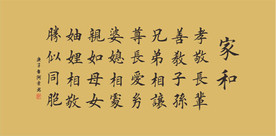 家和
孝敬長輩
善教子孫
兄弟相讓
長愛
婆媳相
親如母女
妯娌相敬
勝似同胞